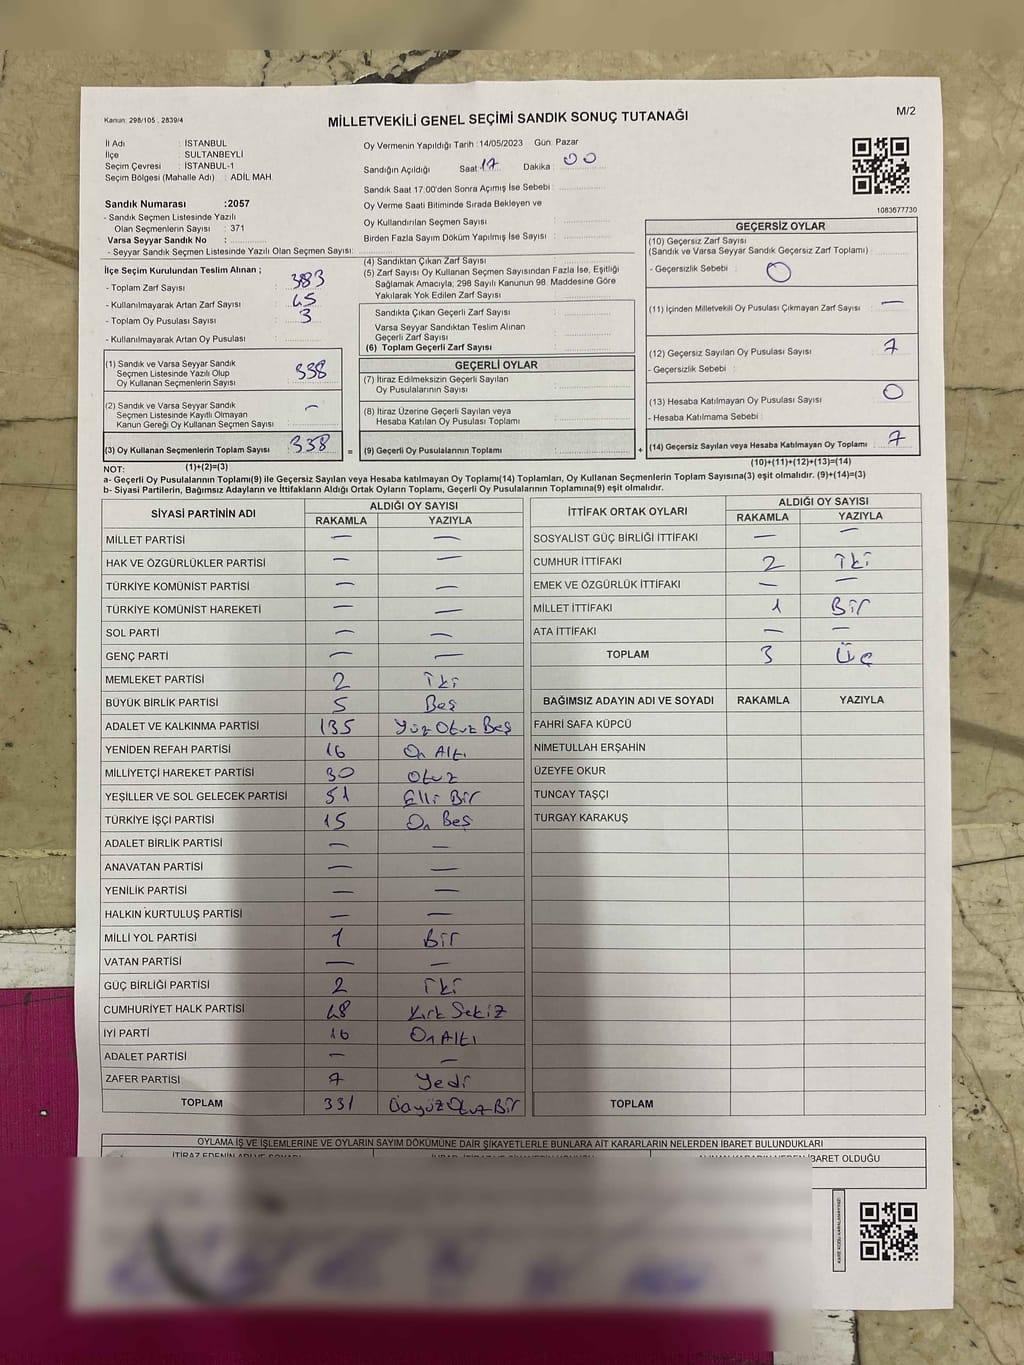 Kanun: 298/105 , 2839/4
MİLLETVEKİLİ GENEL SEÇİMİ SANDIK SONUÇ TUTANAĞI
M/2
İl Adı : İSTANBUL
İlçe : SULTANBEYLİ
Seçim Çevresi : İSTANBUL-1
Seçim Bölgesi (Mahalle Adı) : ADİL MAH.
Oy Vermenin Yapıldığı Tarih : 14/05/2023 Gün: Pazar
Sandığın Açıldığı Saat : 17 Dakika : 00
Sandık Saat 17.00'den Sonra Açımış İse Sebebi :
Oy Verme Saati Bitiminde Sırada Bekleyen ve
Oy Kullandırılan Seçmen Sayısı :
Birden Fazla Sayım Döküm Yapılmış İse Sayısı :
Sandık Numarası :2057
- Sandık Seçmen Listesinde Yazılı
Olan Seçmenlerin Sayısı : 371
Varsa Seyyar Sandık No :
- Seyyar Sandık Seçmen Listesinde Yazılı Olan Seçmen Sayısı:
1083677730
İlçe Seçim Kurulundan Teslim Alınan ;
- Toplam Zarf Sayısı : 383
- Kullanılmayarak Artan Zarf Sayısı : 45
- Toplam Oy Pusulası Sayısı : 3
- Kullanılmayarak Artan Oy Pusulası :
(1) Sandık ve Varsa Seyyar Sandık
Seçmen Listesinde Yazılı Olup
Oy Kullanan Seçmenlerin Sayısı : 338
(2) Sandık ve Varsa Seyyar Sandık
Seçmen Listesinde Kayıtlı Olmayan
Kanun Gereği Oy Kullanan Seçmen Sayısı : —
(3) Oy Kullanan Seçmenlerin Toplam Sayısı : 338 =
(4) Sandıktan Çıkan Zarf Sayısı :
(5) Zarf Sayısı Oy Kullanan Seçmen Sayısından Fazla İse, Eşitliği
Sağlamak Amacıyla; 298 Sayılı Kanunun 98. Maddesine Göre
Yakılarak Yok Edilen Zarf Sayısı :
Sandıkta Çıkan Geçerli Zarf Sayısı :
Varsa Seyyar Sandıktan Teslim Alınan
Geçerli Zarf Sayısı :
(6) Toplam Geçerli Zarf Sayısı :
GEÇERLİ OYLAR
(7) İtiraz Edilmeksizin Geçerli Sayılan
Oy Pusulalarının Sayısı :
(8) İtiraz Üzerine Geçerli Sayılan veya
Hesaba Katılan Oy Pusulası Toplamı :
(9) Geçerli Oy Pusulalarının Toplamı : +
GEÇERSİZ OYLAR
(10) Geçersiz Zarf Sayısı
(Sandık ve Varsa Seyyar Sandık Geçersiz Zarf Toplamı) :
- Geçersizlik Sebebi : 0
(11) İçinden Milletvekili Oy Pusulası Çıkmayan Zarf Sayısı : —
(12) Geçersiz Sayılan Oy Pusulası Sayısı : 7
- Geçersizlik Sebebi :
(13) Hesaba Katılmayan Oy Pusulası Sayısı : 0
- Hesaba Katılmama Sebebi :
(14) Geçersiz Sayılan veya Hesaba Katılmayan Oy Toplamı : 7
NOT: (1)+(2)=(3) (10)+(11)+(12)+(13)=(14)
a- Geçerli Oy Pusulalarının Toplamı(9) ile Geçersiz Sayılan veya Hesaba Katılmayan Oy Toplamı(14) Toplamları, Oy Kullanan Seçmenlerin Toplam Sayısına(3) eşit olmalıdır. (9)+(14)=(3)
b- Siyasi Partilerin, Bağımsız Adayların ve İttifakların Aldığı Ortak Oyların Toplamı, Geçerli Oy Pusulalarının Toplamına(9) eşit olmalıdır.
SİYASİ PARTİNİN ADI ALDIĞI OY SAYISI
RAKAMLA YAZIYLA
MİLLET PARTİSİ — —
HAK VE ÖZGÜRLÜKLER PARTİSİ — —
TÜRKİYE KOMÜNİST PARTİSİ — —
TÜRKİYE KOMÜNİST HAREKETİ — —
SOL PARTİ — —
GENÇ PARTİ — —
MEMLEKET PARTİSİ 2 İki
BÜYÜK BİRLİK PARTİSİ 5 Beş
ADALET VE KALKINMA PARTİSİ 135 Yüz Otuz Beş
YENİDEN REFAH PARTİSİ 16 On Altı
MİLLİYETÇİ HAREKET PARTİSİ 30 Otuz
YEŞİLLER VE SOL GELECEK PARTİSİ 51 Elli Bir
TÜRKİYE İŞÇİ PARTİSİ 15 On Beş
ADALET BİRLİK PARTİSİ — —
ANAVATAN PARTİSİ — —
YENİLİK PARTİSİ — —
HALKIN KURTULUŞ PARTİSİ — —
MİLLİ YOL PARTİSİ 1 Bir
VATAN PARTİSİ — —
GÜÇ BİRLİĞİ PARTİSİ 2 İki
CUMHURİYET HALK PARTİSİ 48 Kırk Sekiz
İYİ PARTİ 16 On Altı
ADALET PARTİSİ — —
ZAFER PARTİSİ 7 Yedi
TOPLAM 331
İTTİFAK ORTAK OYLARI ALDIĞI OY SAYISI
RAKAMLA YAZIYLA
SOSYALİST GÜÇ BİRLİĞİ İTTİFAKI — —
CUMHUR İTTİFAKI 2 İki
EMEK VE ÖZGÜRLÜK İTTİFAKI — —
MİLLET İTTİFAKI 1 Bir
ATA İTTİFAKI — —
TOPLAM 3 Üç
BAĞIMSIZ ADAYIN ADI VE SOYADI RAKAMLA YAZIYLA
FAHRİ SAFA KÜPCÜ
NİMETULLAH ERŞAHİN
ÜZEYFE OKUR
TUNCAY TAŞÇI
TURGAY KARAKUŞ
TOPLAM
OYLAMA İŞ VE İŞLEMLERİNE VE OYLARIN SAYIM DÖKÜMÜNE DAİR ŞİKAYETLERLE BUNLARA AİT KARARLARIN NELERDEN İBARET BULUNDUKLARI
İBARET OLDUĞU